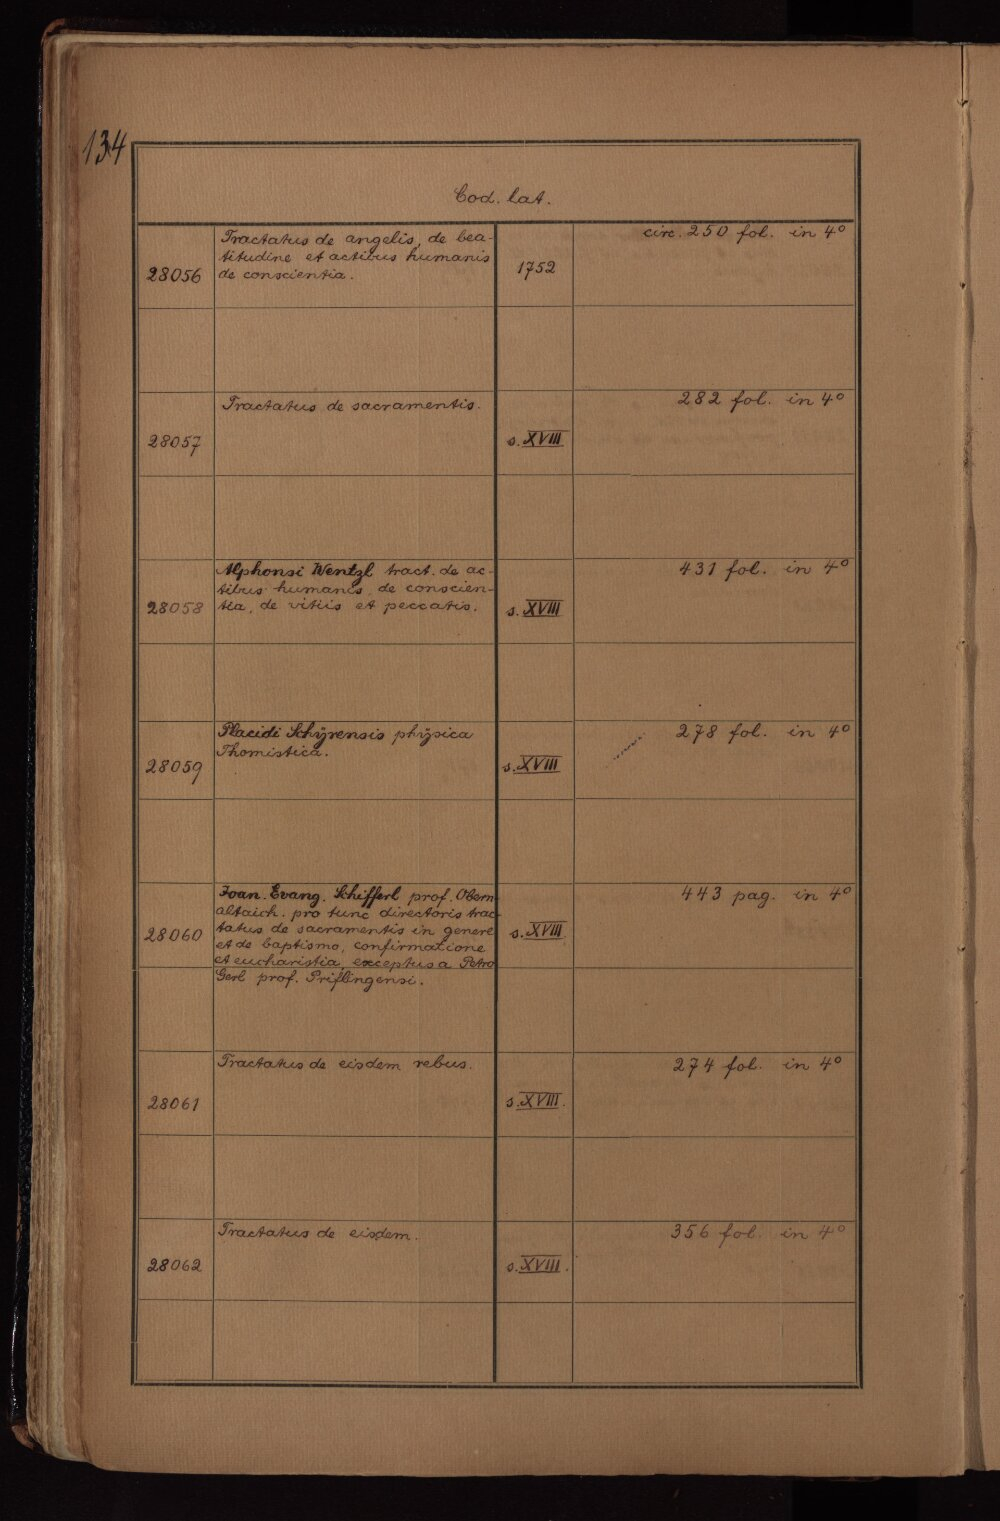 134
Cod. lat.
28056
Tractatus de angelis, de bea-
titudine et actibus humanis
de conscientia.
1752
circ. 250 fol. in 4º
28057
Tractatus de sacramentis.
s. XVIII
282 fol. in 4º
28058
Alphonsi Wentzl tract. de ac-
tibus humanis, de conscien-
tia, de vitiis et peccatis.
s. XVIII
431 fol. in 4º
28059
Placidi Schÿrensis phÿsica
Thomistica.
s. XVIII
278 fol. in 4º
28060
Joan. Evang. Schifferl prof. Obern
altaich. pro tunc directoris trac-
tatus de sacramentis in genere
et de baptismo, confirmatione
et eucharistia, exceptus a Petro
Gerl prof. Priflingensi.
s. XVIII.
443 pag. in 4º
28061
Tractatus de eisdem rebus.
s. XVIII.
274 fol. in 4º
28062
Tractatus de eisdem.
s. XVIII.
356 fol. in 4º